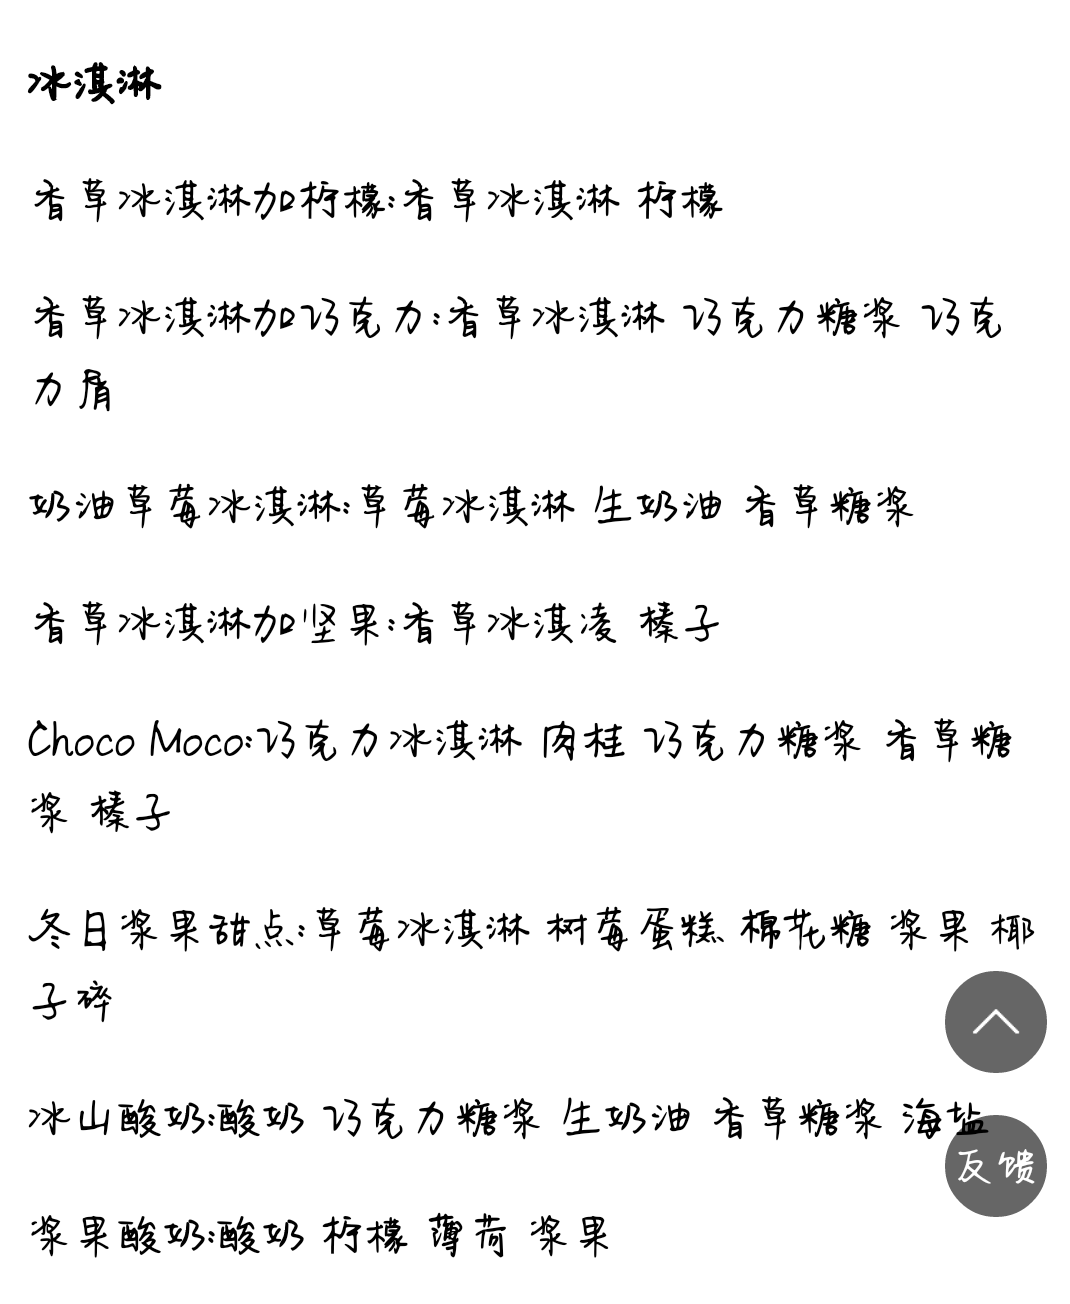 冰淇淋
香草冰淇淋加柠檬:香草冰淇淋 柠檬
香草冰淇淋加巧克力:香草冰淇淋 巧克力糖浆 巧克
力屑
奶油草莓冰淇淋:草莓冰淇淋 生奶油 香草糖浆
香草冰淇淋加坚果:香草冰淇凌 榛子
Choco Moco:巧克力冰淇淋 肉桂 巧克力糖浆 香草糖
浆 榛子
冬日浆果甜点:草莓冰淇淋 树莓蛋糕 棉花糖 浆果 椰
子碎
冰山酸奶:酸奶 巧克力糖浆 生奶油 香草糖浆 海盐
反馈
浆果酸奶:酸奶 柠檬 薄荷 浆果